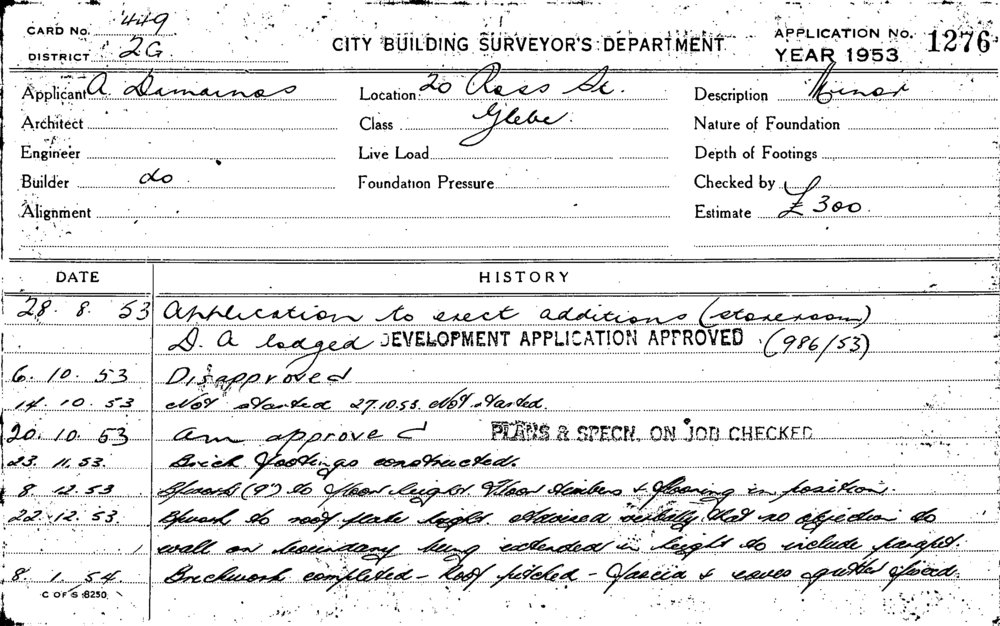 CARD No. 449
DISTRICT 2G
CITY BUILDING SURVEYOR'S DEPARTMENT
APPLICATION No. 1276
YEAR 1953
Applicant A Damainos Location: 20 Ross St. Description Minor
Architect Class Glebe. Nature of Foundation
Engineer Live Load Depth of Footings
Builder do Foundation Pressure Checked by
Alignment Estimate £300.
DATE HISTORY
28. 8. 53 Application to erect additions (storeroom)
D. A lodged DEVELOPMENT APPLICATION APPROVED (986/53)
6. 10. 53 Disapproved
14. 10. 53 Not started 27.10.53. Not started.
20. 10. 53 am approved PLANS & SPECN. ON JOB CHECKED
23. 11. 53. Brick footings constructed.
8. 12. 53 Bwork (9") to floor height Floor timbers & flooring in position.
22. 12. 53. Bwork to roof plate height Advised verbally that no objection to
wall on boundary being extended in height to include parapet.
8. 1. 54 Brickwork completed - Roof pitched - fascia & eaves gutter fixed.
C OF S 8250